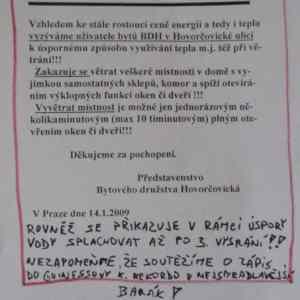 Vzhledem ke stále rostoucí ceně energií a tedy i tepla
vyzýváme uživatele bytů BDH v Hovorčovické ulici
k úspornému způsobu využívání tepla m.j. též při vě-
trání!!!
Zakazuje se větrat veškeré místnosti v domě s vy-
jímkou samostatných sklepů, komor a spíží otevírá-
ním výklopných funkcí oken či dveří !!!
Vyvětrat místnost je možné jen jednorázovým ně-
kolikaminutovým (max 10 timinutovým) plným ote-
vřením oken či dveří!!!
Děkujeme za pochopení.
Představenstvo
Bytového družstva Hovorčovická
V Praze dne 14.1.2009
ROVNĚŽ SE PŘIKAZUJE V RÁMCI ÚSPORY
VODY SPLACHOVAT AŽ PO 3. VYSRÁNÍ !!
NEZAPOMEŇME, ŽE SOUTĚŽÍME O ZÁPIS
DO GUINESSOVY K. REKORDŮ O NEJSMRADLAVĚJŠÍ
BARÁK !